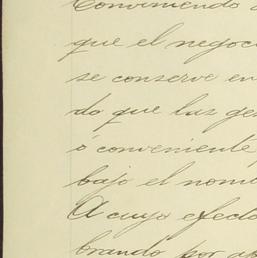 Conviniendo
que el negoci
se conserve en
do que las ge
ó conveniente
bajo el nom
A cuyo efecto
brando por ap